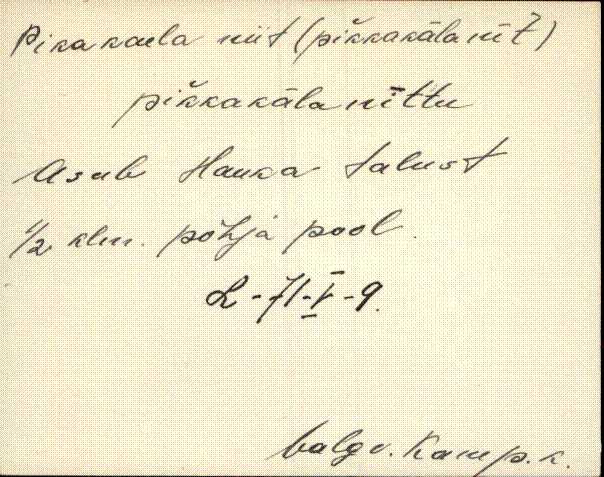 Pikakaela niit (pikkakäla nīt̆)
pikkakäla nīttu
Asub Hauka talust
1/2 klm. põhja pool.
L-71-V-9.
Valgv. Kamp.k.